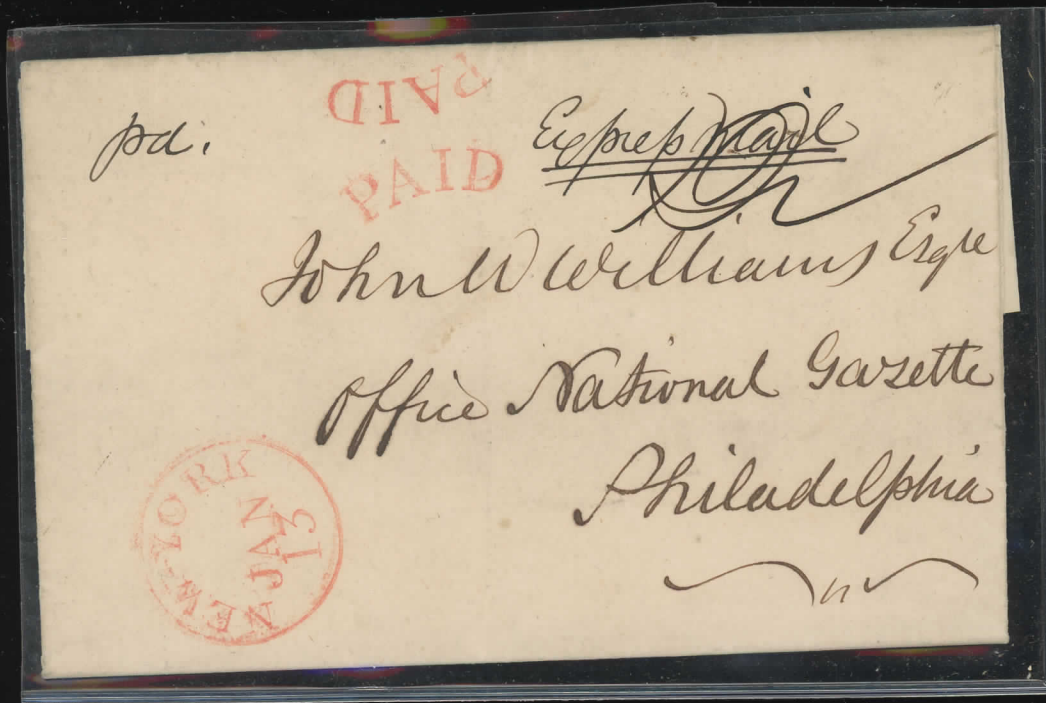 PAID
PAID
pd.
Express Mail
John W Williams Esqre
Office National Gazette
Philadelphia
NEW-YORK
JAN
13